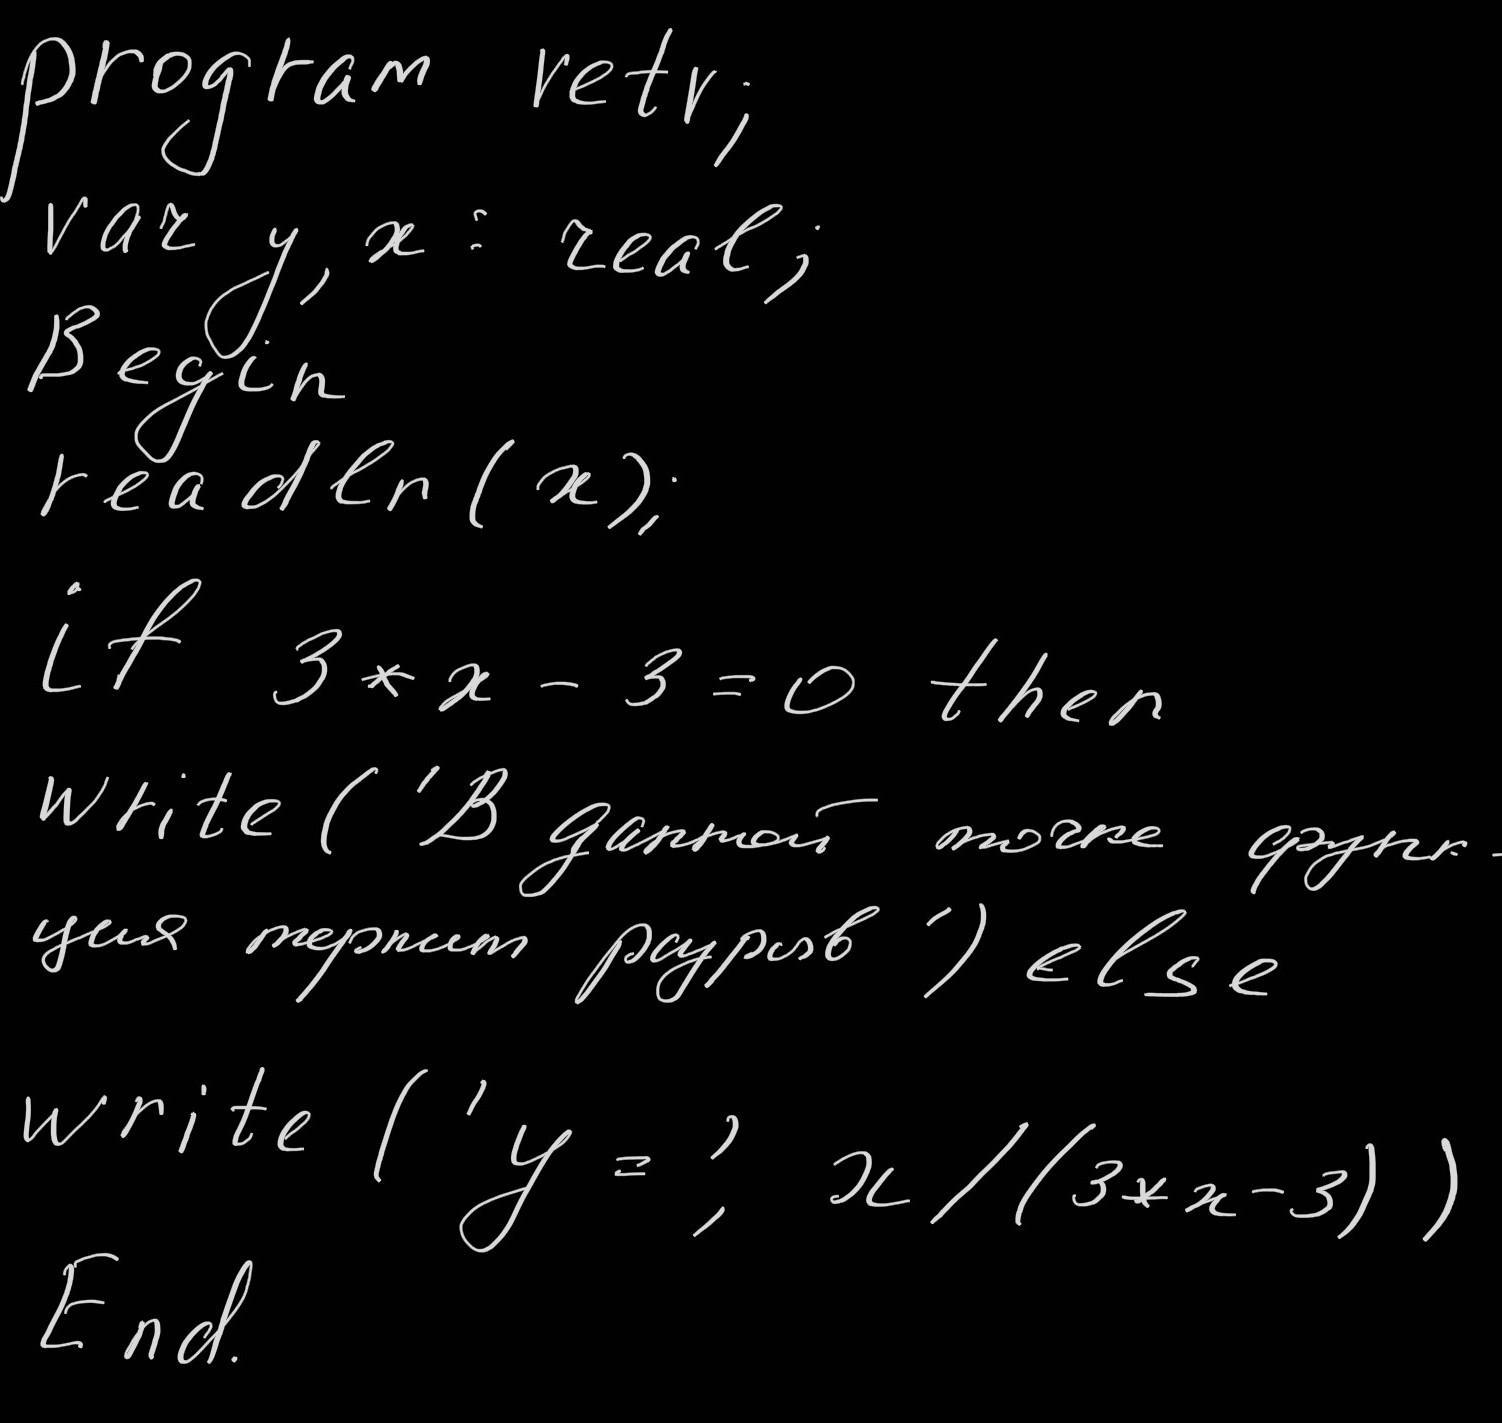 program retv;
var y, x : real;
Begin
readln(x);
if 3*x - 3 = 0 then
write('В данной точке функ-
ция терпит разрыв') else
write('y=', x/(3*x-3))
End.